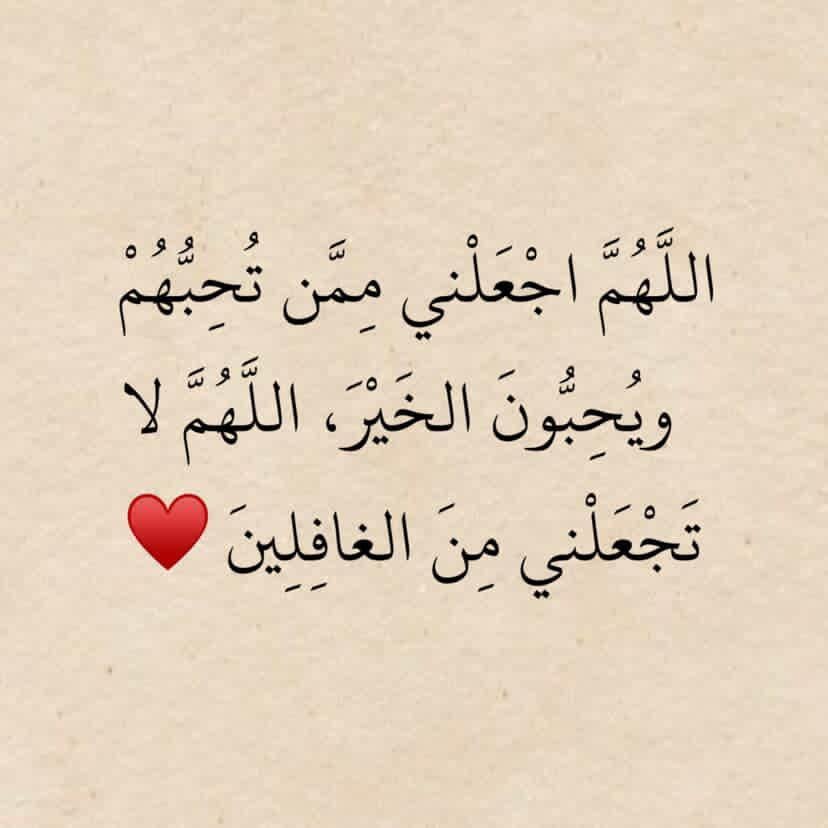 اللَّهُمَّ اجْعَلْني مِمَّن تُحِبُّهُمْ
ويُحِبُّونَ الخَيْرَ، اللَّهُمَّ لا
تَجْعَلْني مِنَ الغافِلِينَ ♥️